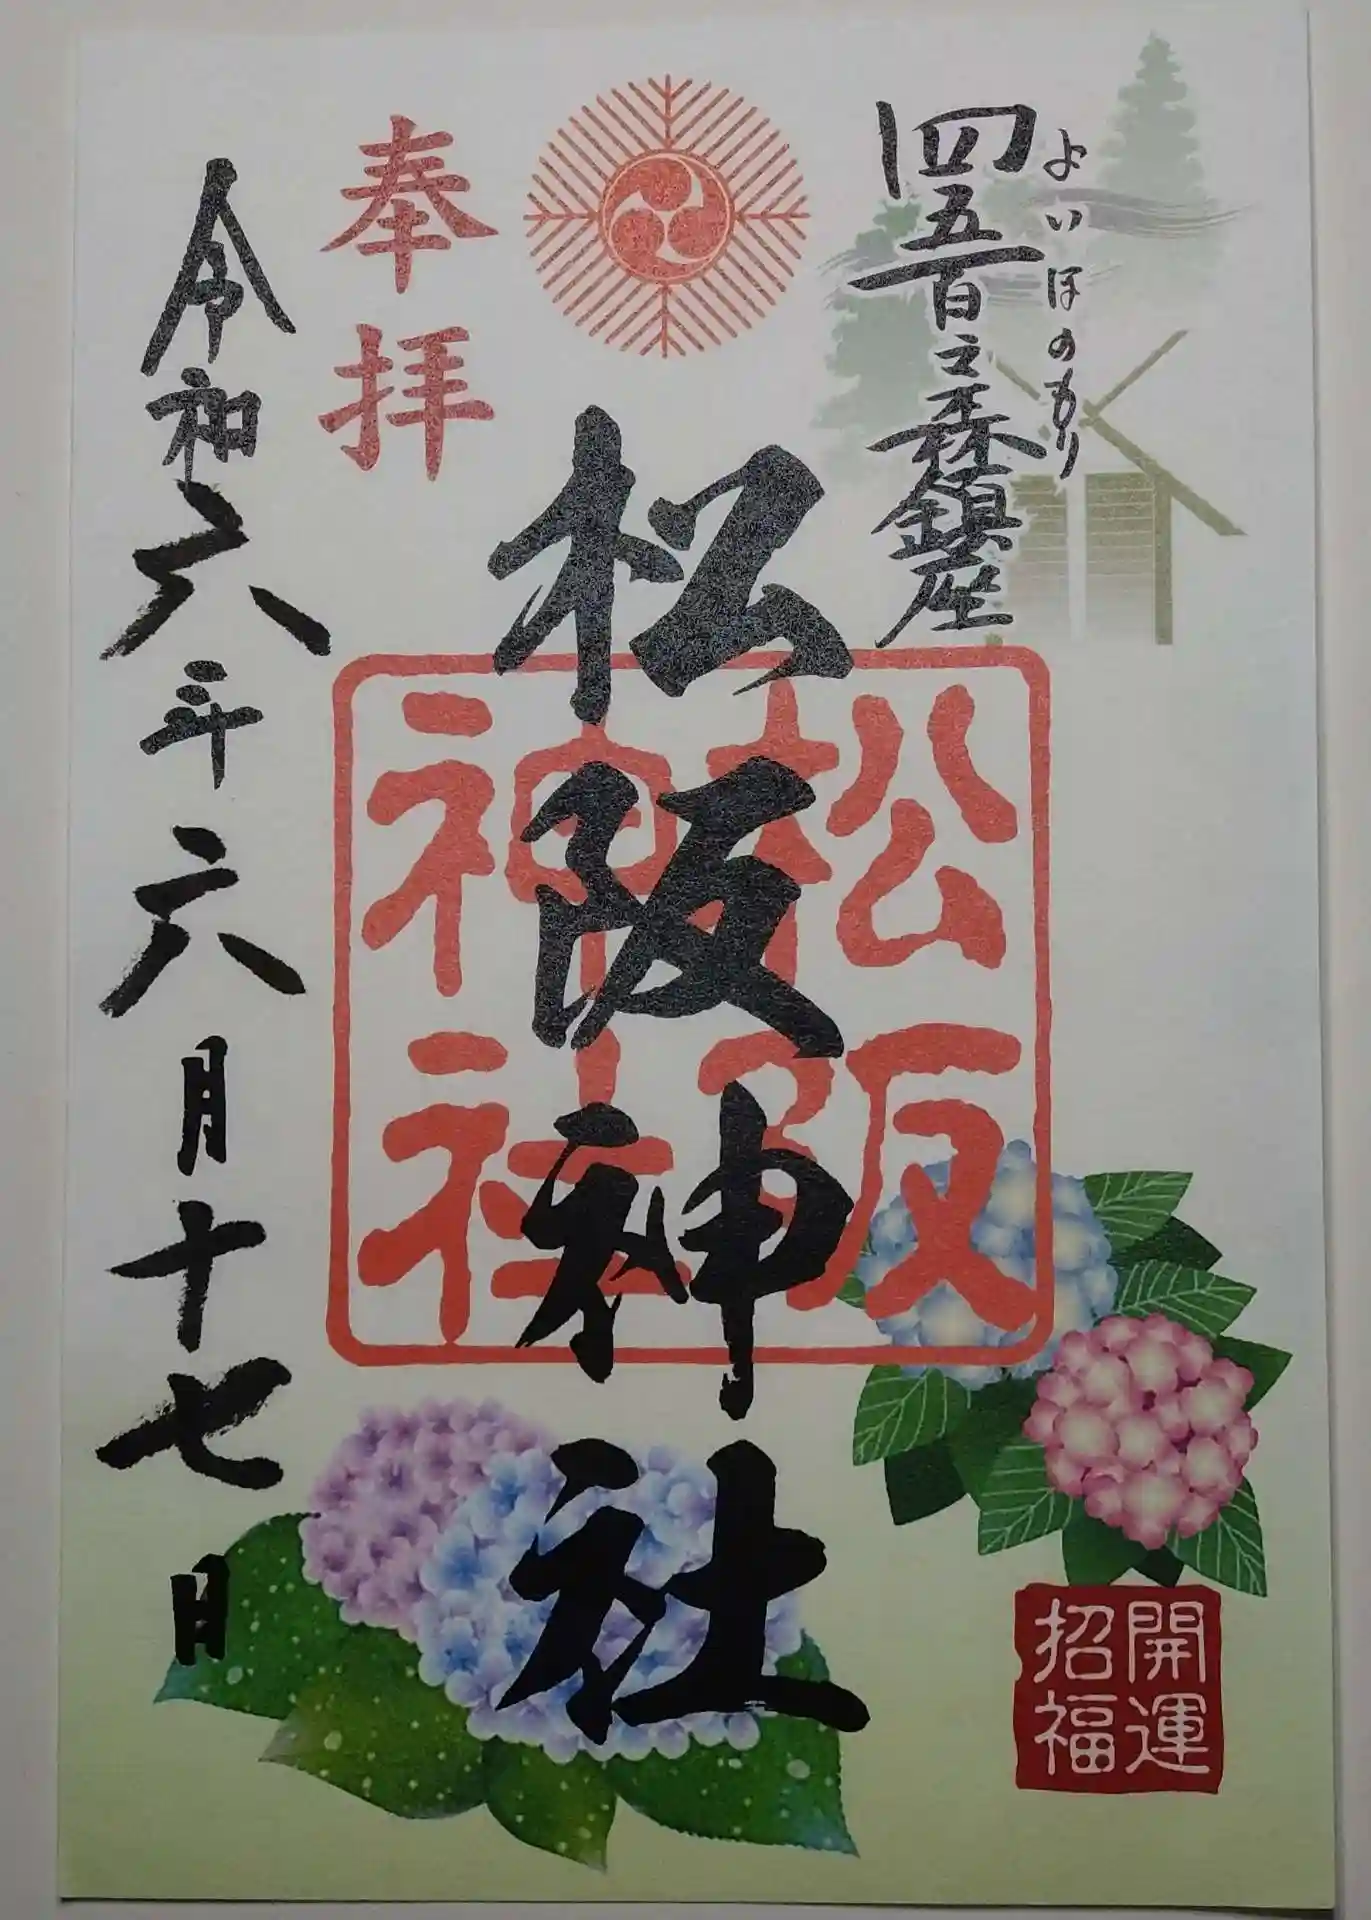 四五百之森鎮座
よいほのもり
松阪神社
奉拝
令和六年六月十七日
松阪
神社
開運
招福